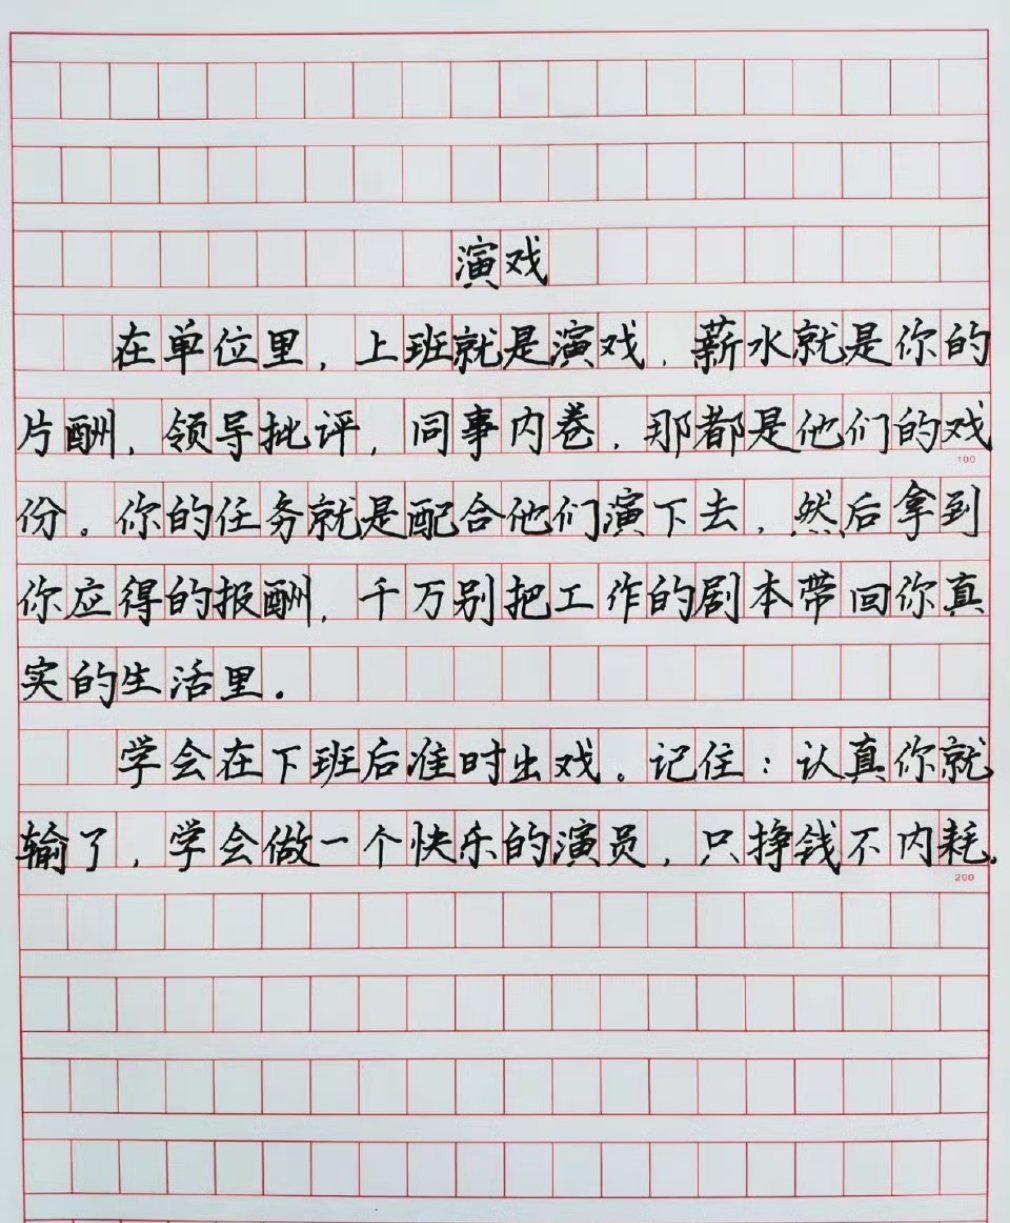 演戏
在单位里，上班就是演戏，薪水就是你的
片酬，领导批评，同事内卷，那都是他们的戏
100
份。你的任务就是配合他们演下去，然后拿到
你应得的报酬，千万别把工作的剧本带回你真
实的生活里。
学会在下班后准时出戏。记住：认真你就
输了，学会做一个快乐的演员，只挣钱不内耗。
200